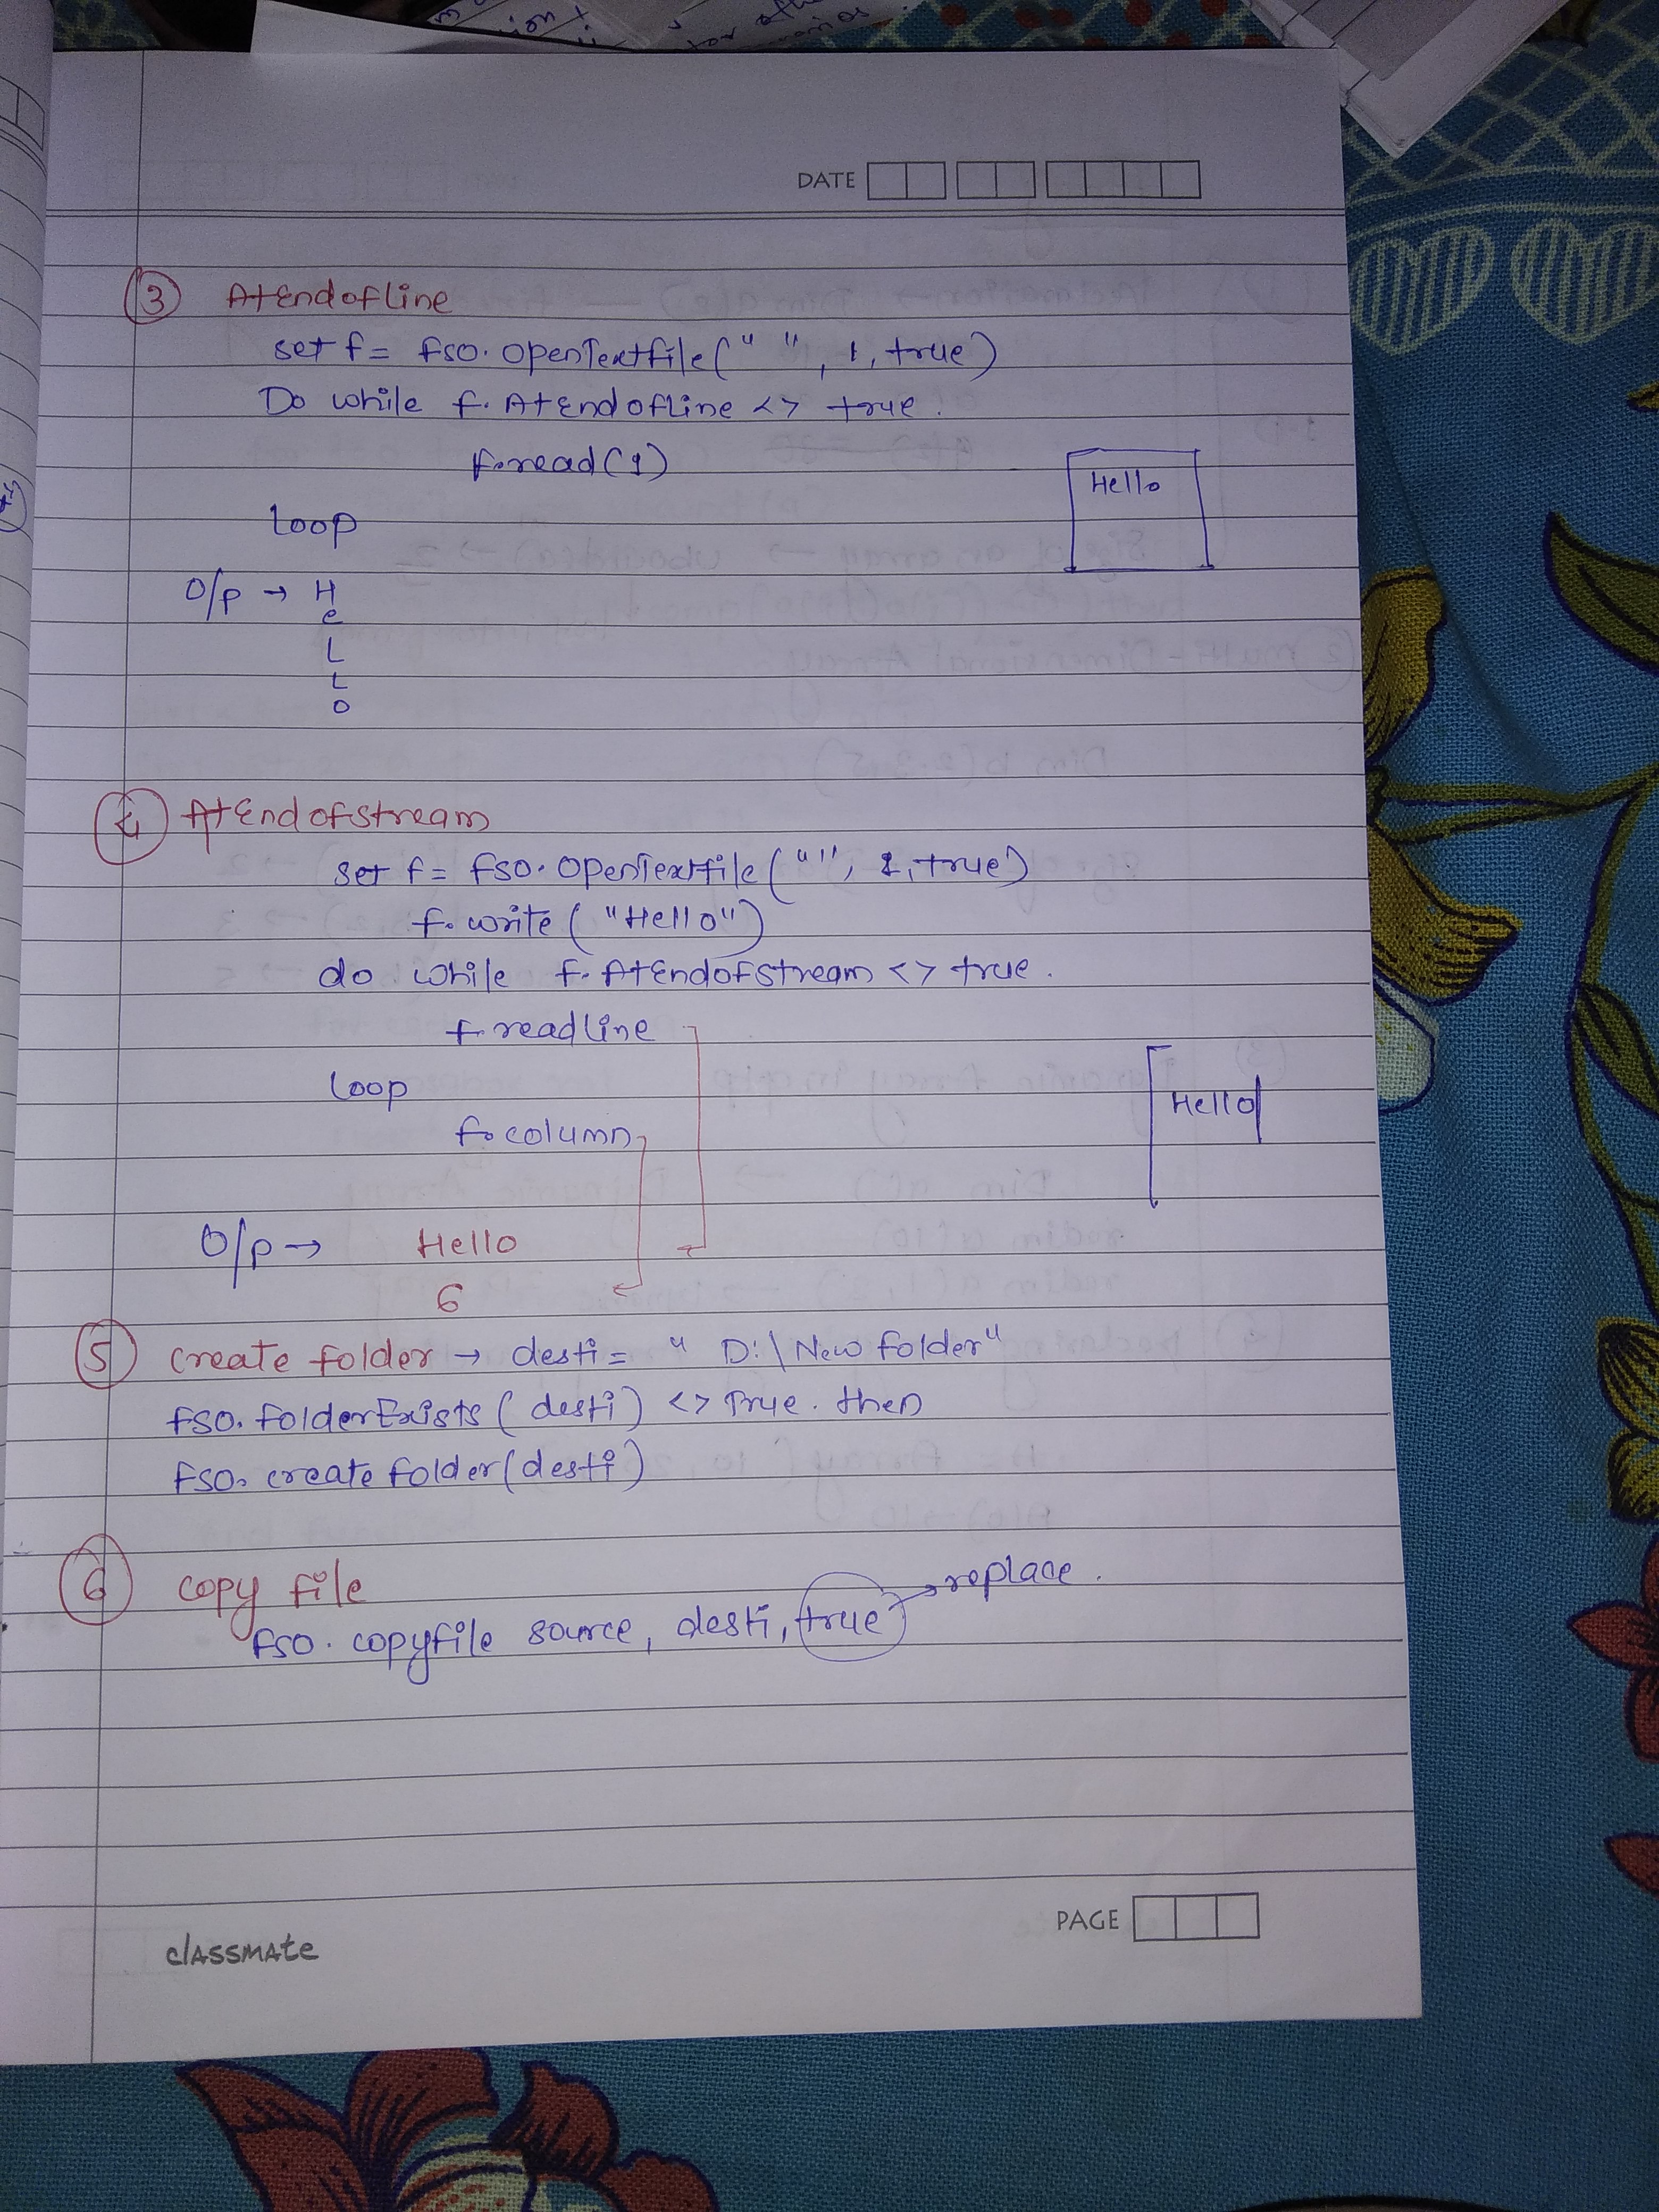 DATE
3 AtEndofLine
set f = fso.OpenTextfile(" ", 1, true)
Do while f.AtEndofLine <> true.
f.read(1)
Hello
Loop
O/p → H
e
L
L
o
4 AtEndofstream
set f = fso.OpenTextfile("", 1, true)
f.write("Hello")
do while f.AtEndofstream <> true.
f.readline
Loop
Hello
f.column
O/p → Hello
6
5 create folder → desti = " D:\New folder"
fso.folderExists(desti) <> True. then
fso.create folder(desti)
6 copy file
replace.
fso.copyfile source, desti, true
classmate
PAGE